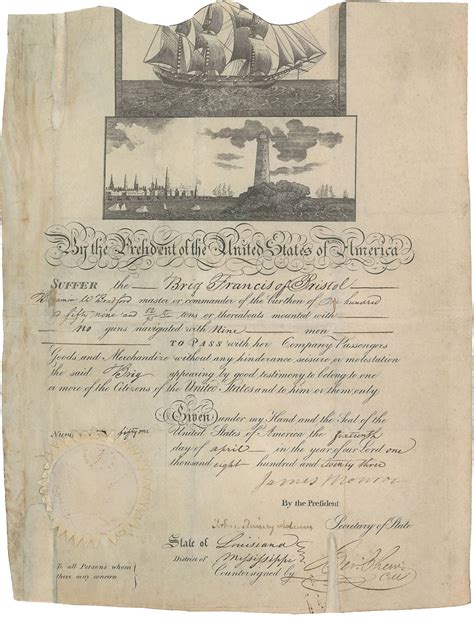 By the President of the United States of America
SUFFER the Brig Francis of Bristol
W Bedford master or commander of the burthen of hundred
fifty nine and tons or thereabouts mounted with
no guns navigated with Nine men
TO PASS with her Company Passengers
Goods and Merchandize without any hinderance seisure or molestation
the said Brig appearing by good testimony to belong to one
or more of the Citizens of the United States and to him or them only
Given under my Hand and the Seal of the
fifty one United States of America the
day of april in the year of our Lord one
thousand eight hundred and twenty three
James Monroe
By the President
John Quincy Adams Secretary of State
State of Louisiana
District of Mississippi
Countersigned by
To all Persons whom
these may concern